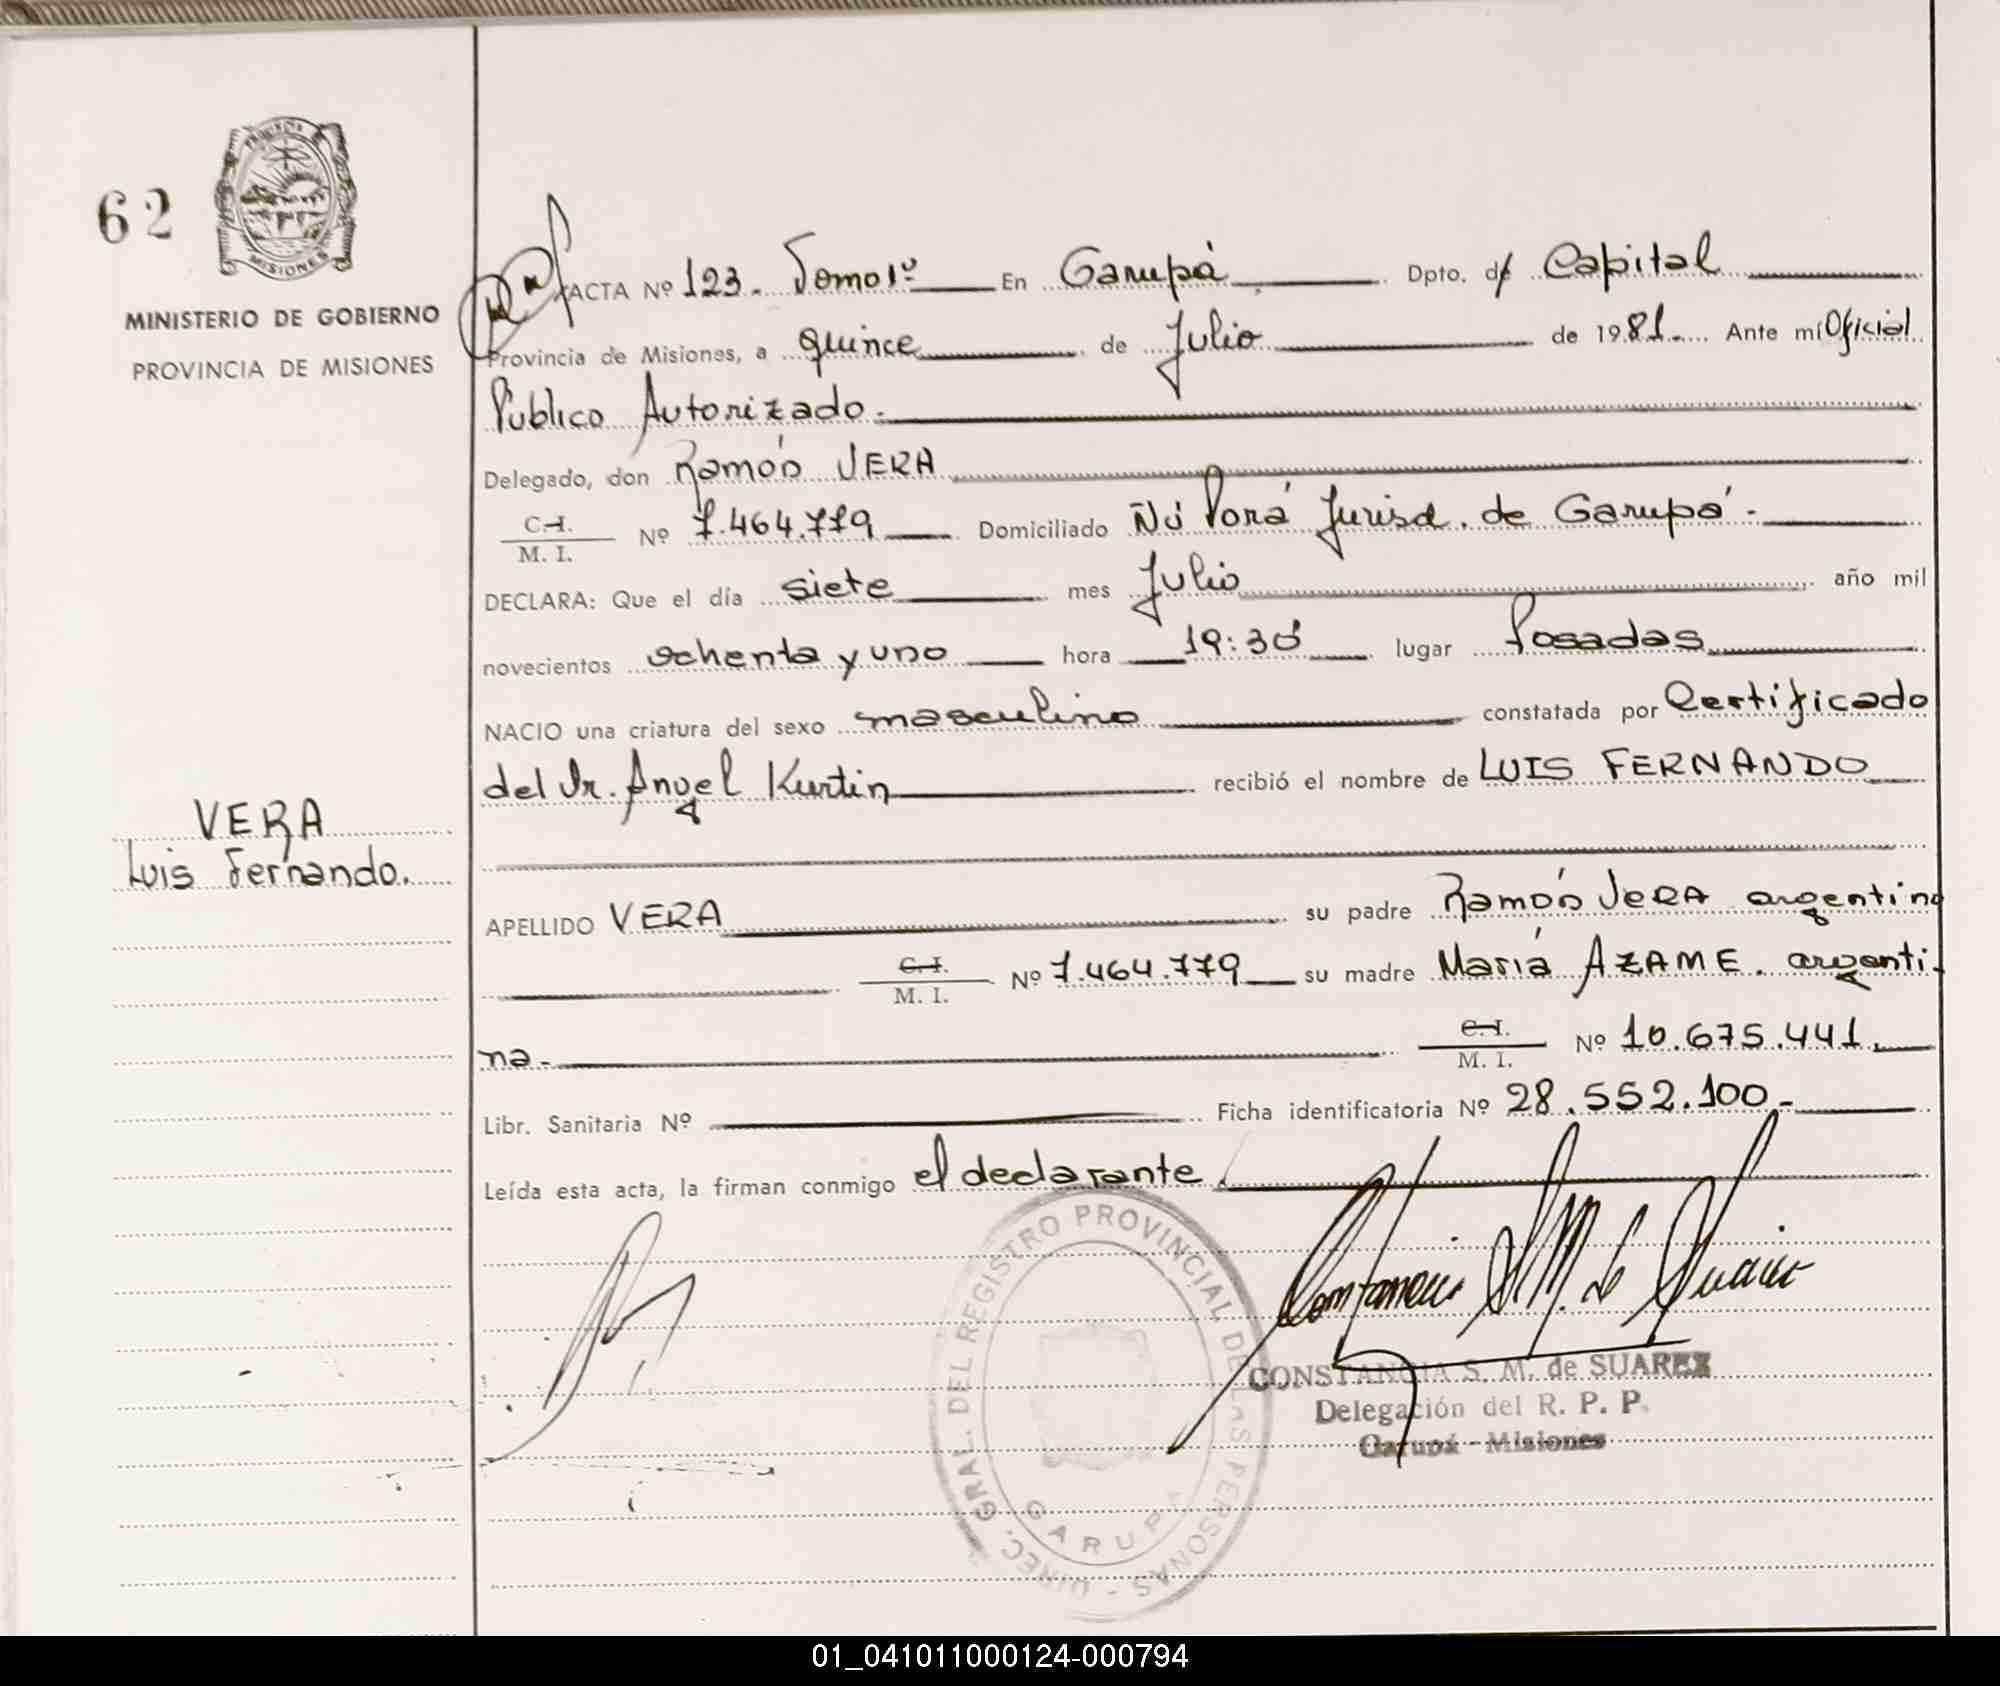 62
PROVINCIA
MISIONES
MINISTERIO DE GOBIERNO
PROVINCIA DE MISIONES
VERA
Luis Fernando.
ACTA Nº 123. Tomo 1º En Garupá Dpto. de Capital
Provincia de Misiones, a quince de Julio de 1981. Ante mí Oficial
Publico Autorizado.
Delegado, don Ramón VERA
C.I. / M. I. Nº 7.464.779 Domiciliado Ñú Porá Jurisd. de Garupá.
DECLARA: Que el día siete mes Julio año mil
novecientos ochenta y uno hora 19:30 lugar Posadas
NACIO una criatura del sexo masculino constatada por Certificado
del Dr. Angel Kurtin recibió el nombre de LUIS FERNANDO
APELLIDO VERA su padre Ramón VERA argentino
C.I. / M. I. Nº 7.464.779 su madre María AZAME. argenti-
na. C.I. / M. I. Nº 10.675.441.
Libr. Sanitaria Nº Ficha identificatoria Nº 28.552.100.-
Leída esta acta, la firman conmigo el declarante.
DIREC. GRAL. DEL REGISTRO PROVINCIAL DE LAS PERSONAS -
GARUPA
CONSTANCIA S. M. de SUAREZ
Delegación del R. P. P.
Garupá - Misiones
01_041011000124-000794